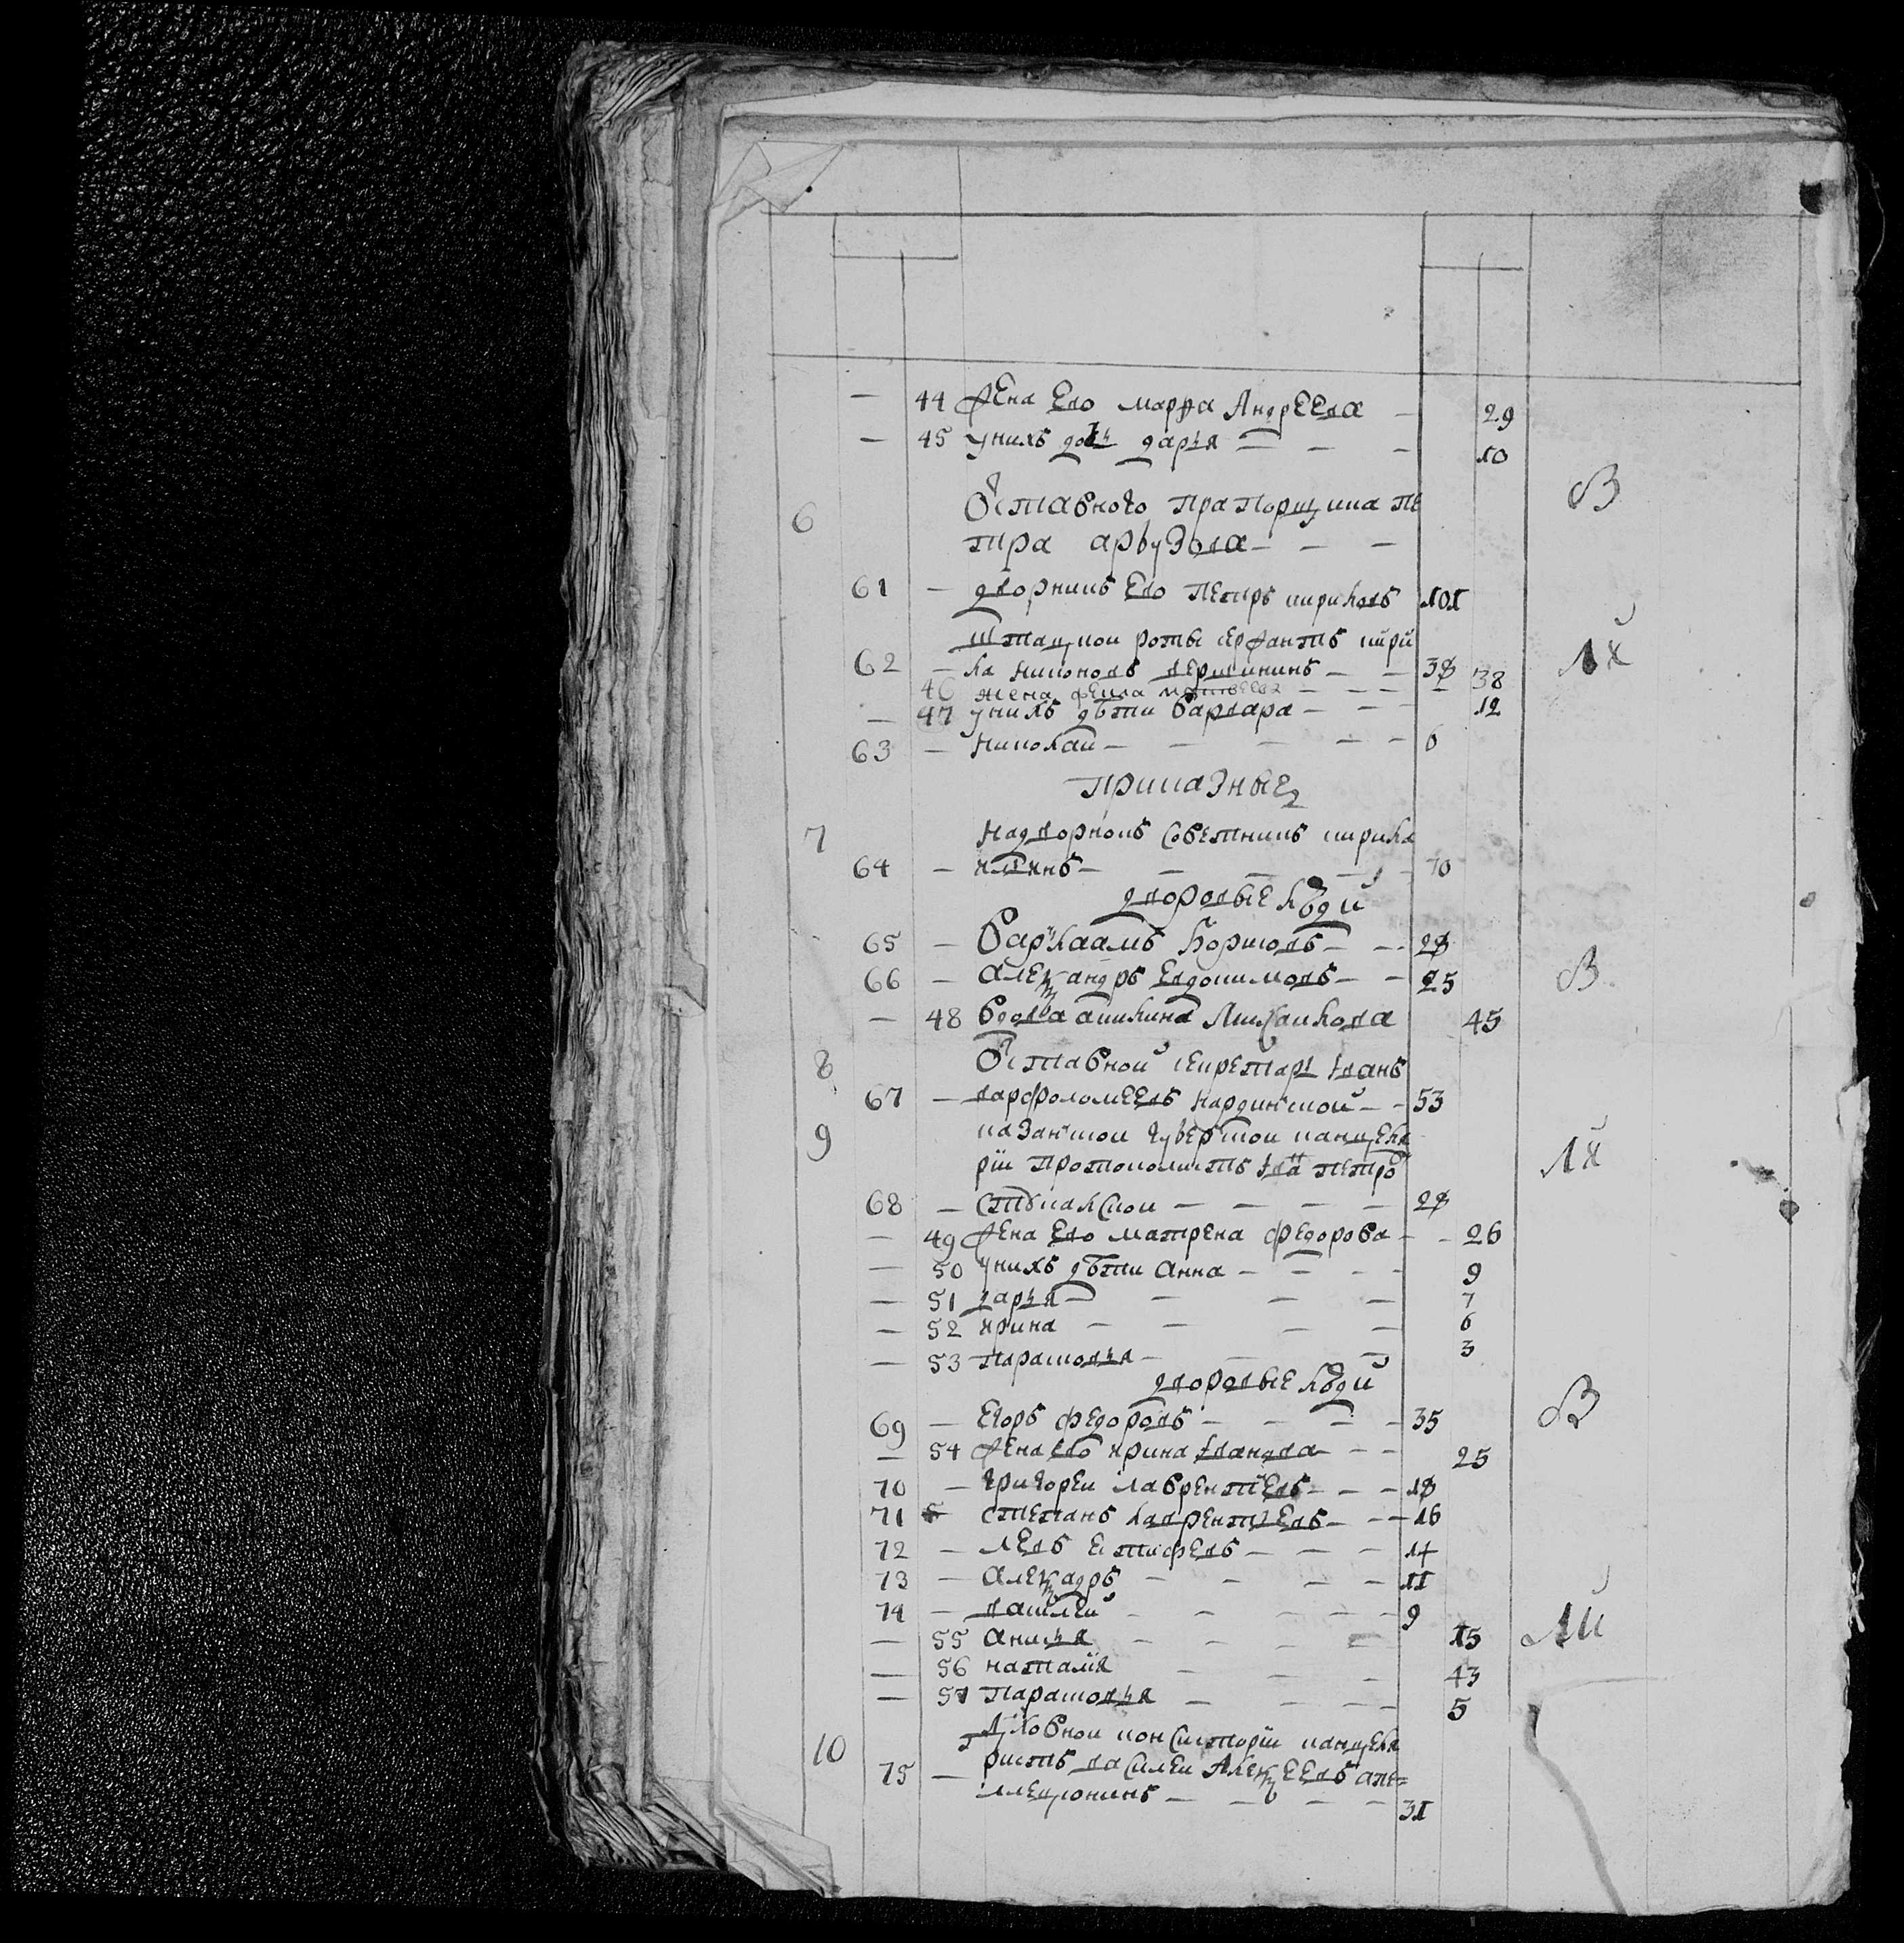 — 44 жена Ево марѳа Андреева — 29
— 45 унихъ дочь дарья — — — 10
6 Отставного Прапорщика Пе
тра арбузова — — — В
61 — дворникъ Ево Петръ кириловъ 101
штатной роты сержантъ кири
62 — ла никоновъ вершининъ — — 38
46 жена фекла матвеева — — — — 38
— 47 унихъ дѣти варвара — — — 12
63 — николаи — — — — — 6
Приказные
7 надворной Советникъ кирила
64 — ильинъ — — — — 70
дворовые люди
65 — Варлаамъ Борисовъ — — 28
66 — александръ Евдокимовъ — — 25 В
— 48 вдова акилина Михаилова 45
8 Отставной секретарь иванъ
67 — варфоломеевъ нардинской — — 53
9 казанской губернской канцеля
рiи протоколистъ ива петро
68 — — — — — 28
— 49 жена Ево матрена федорова — — 26
— 50 унихъ дѣти анна — — — — 9
— 51 дарья — — — — 7
— 52 ирина — — — — 6
— 53 Парасковья — — — 3
дворовые люди
69 — Егоръ федоровъ — — — — 35 В
— 54 жена ево ирина иванова — — 25
70 — григореи лаврентьевъ — — — 18
71 степанъ лаврентьевъ — — — 16
72 — левъ Естифевъ — — — 14
73 — александръ — — — — 11
74 — василеи — — — — — 9
— 55 анисья — — — — 15
— 56 наталiя — — — 43
— 57 Парасковья — — — 5
10 духовной консисторiи канцеля
75 — ристъ василеи Алексеевъ апе=
— — — — 31